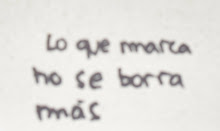 Lo que marca
no se borra
más